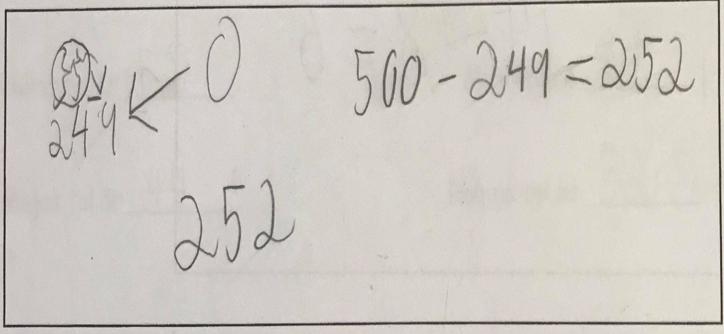 0
500 - 249 = 252
249
252